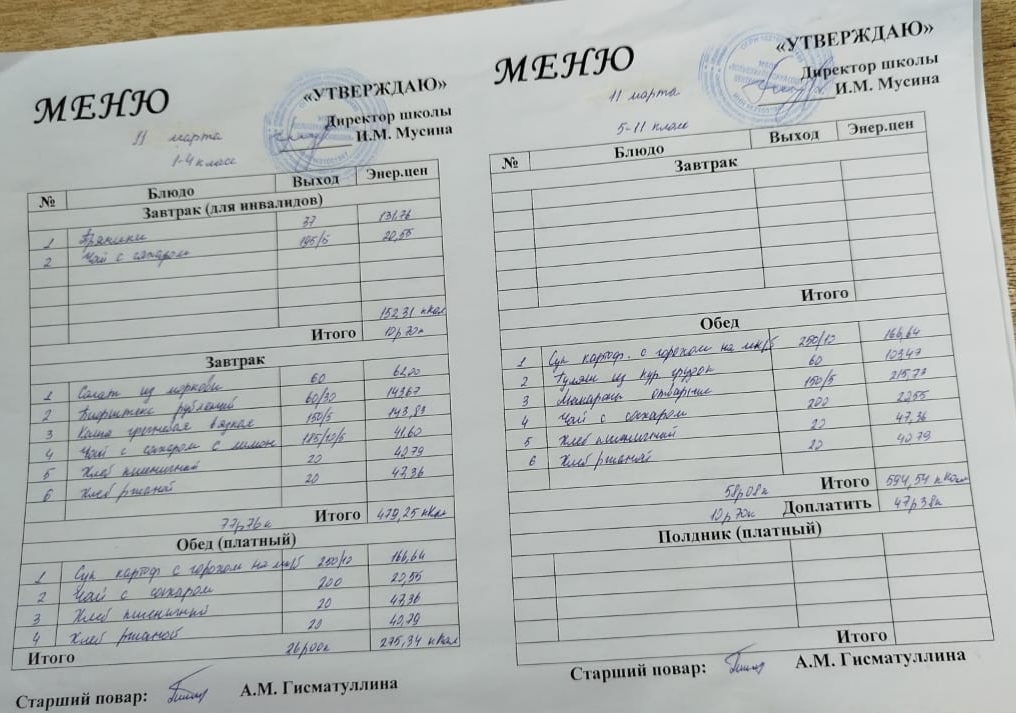 МЕНЮ
«УТВЕРЖДАЮ»
Директор школы
И.М. Мусина
11 марта
1-4 класс
№ Блюдо Выход Энер.цен
Завтрак (для инвалидов)
1 Пряники 37 131,76
2 Чай с сахаром 195/5 20,55
152,31 кКал
Итого 10р70к
Завтрак
1 Салат из моркови 60 61,00
2 Бифштекс рубленый 60/30 143,67
3 Каша гречневая вязкая 150/5 143,83
4 Чай с сахаром с лимон 185/10/5 41,60
5 Хлеб пшеничный 20 40,79
6 Хлеб ржаной 20 47,36
77р76к Итого 479,25 кКал
Обед (платный)
1 Суп картоф с горохом на мк/б 250/10 166,64
2 Чай с сахаром 200 20,55
3 Хлеб пшеничный 20 47,36
4 Хлеб ржаной 20 40,79
Итого 26р00к 275,34 кКал
Старший повар: А.М. Гисматуллина
МЕНЮ
«УТВЕРЖДАЮ»
Директор школы
И.М. Мусина
11 марта
5-11 класс
№ Блюдо Выход Энер.цен
Завтрак
Итого
Обед
1 Суп картоф. с горохом на мк/б 250/10 166,64
2 Гуляш из кур. грудок 60 103,47
3 Макароны отварные 150/5 215,73
4 Чай с сахаром 200 20,55
5 Хлеб пшеничный 20 47,36
6 Хлеб ржаной 20 40,79
58р08к Итого 594,54 кКал
10р70к Доплатить 47р38к
Полдник (платный)
Итого
Старший повар: А.М. Гисматуллина